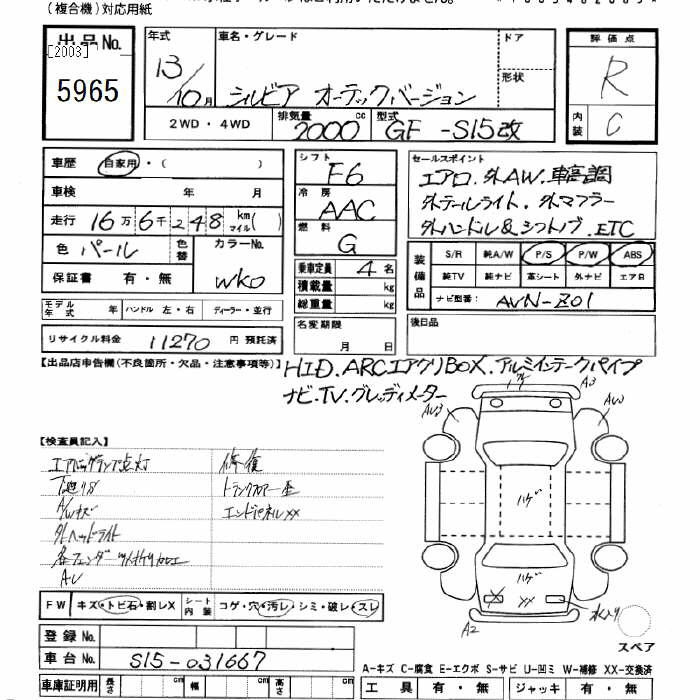 (複合機)対応用紙
出品No.
[2003]
5965
年式 13/10月
車名・グレード
シルビア オーテックバージョン
ドア
形状
評価点
R
内装 C
2WD・4WD
排気量 2000 cc
型式 GF -S15改
車歴 自家用・( )
車検 年 月
走行 16万6千248 km マイル( )
色 パール 色替 カラーNo. WK0
保証書 有・無
モデル年式 年 ハンドル 左・右 ディーラー・並行
リサイクル料金 11270 円 預託済
シフト F6
冷房 AAC
燃料 G
乗車定員 4名
積載量 kg
総重量 kg
名変期限
月 日
セールスポイント
エアロ.外AW.車高調
外テールライト.外マフラー
外ハンドル&シフトノブ.ETC
装備品
S/R 純A/W P/S P/W ABS
純TV 純ナビ 革シート 外ナビ エアB
ナビ型番: AVN-Z01
後日品
【出品店申告欄(不良箇所・欠品・注意事項等)】
HID.ARCエアクリBOX.アルミインテークパイプ
ナビ.TV.グレッディメーター
【検査員記入】
エアバッグランプ点灯
下廻りサビ
A/Wキズ
外ヘッドライト
修復
トランクフロアー歪
エンドパネルXX
A3
AU3
A2
XX
スペア
FW キズ・トビ石・割レX シート内装 コゲ・穴・汚レ・シミ・破レ・スレ
登録No.
車台No. S15-031667
車庫証明用 長さ cm 幅 cm 高さ cm
A-キズ C-腐食 E-エクボ S-サビ U-凹ミ W-補修 XX-交換済
工具 有・無 ジャッキ 有・無